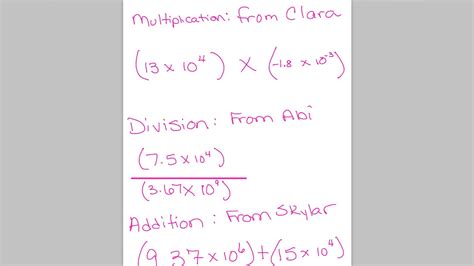 Multiplication: from Clara
(13 x 10⁴) x (-1.8 x 10⁻³)
Division: From Abi
(7.5 x 10⁴)
(3.67 x 10⁹)
Addition: From Skylar
(9.37 x 10⁶) + (15 x 10⁴)